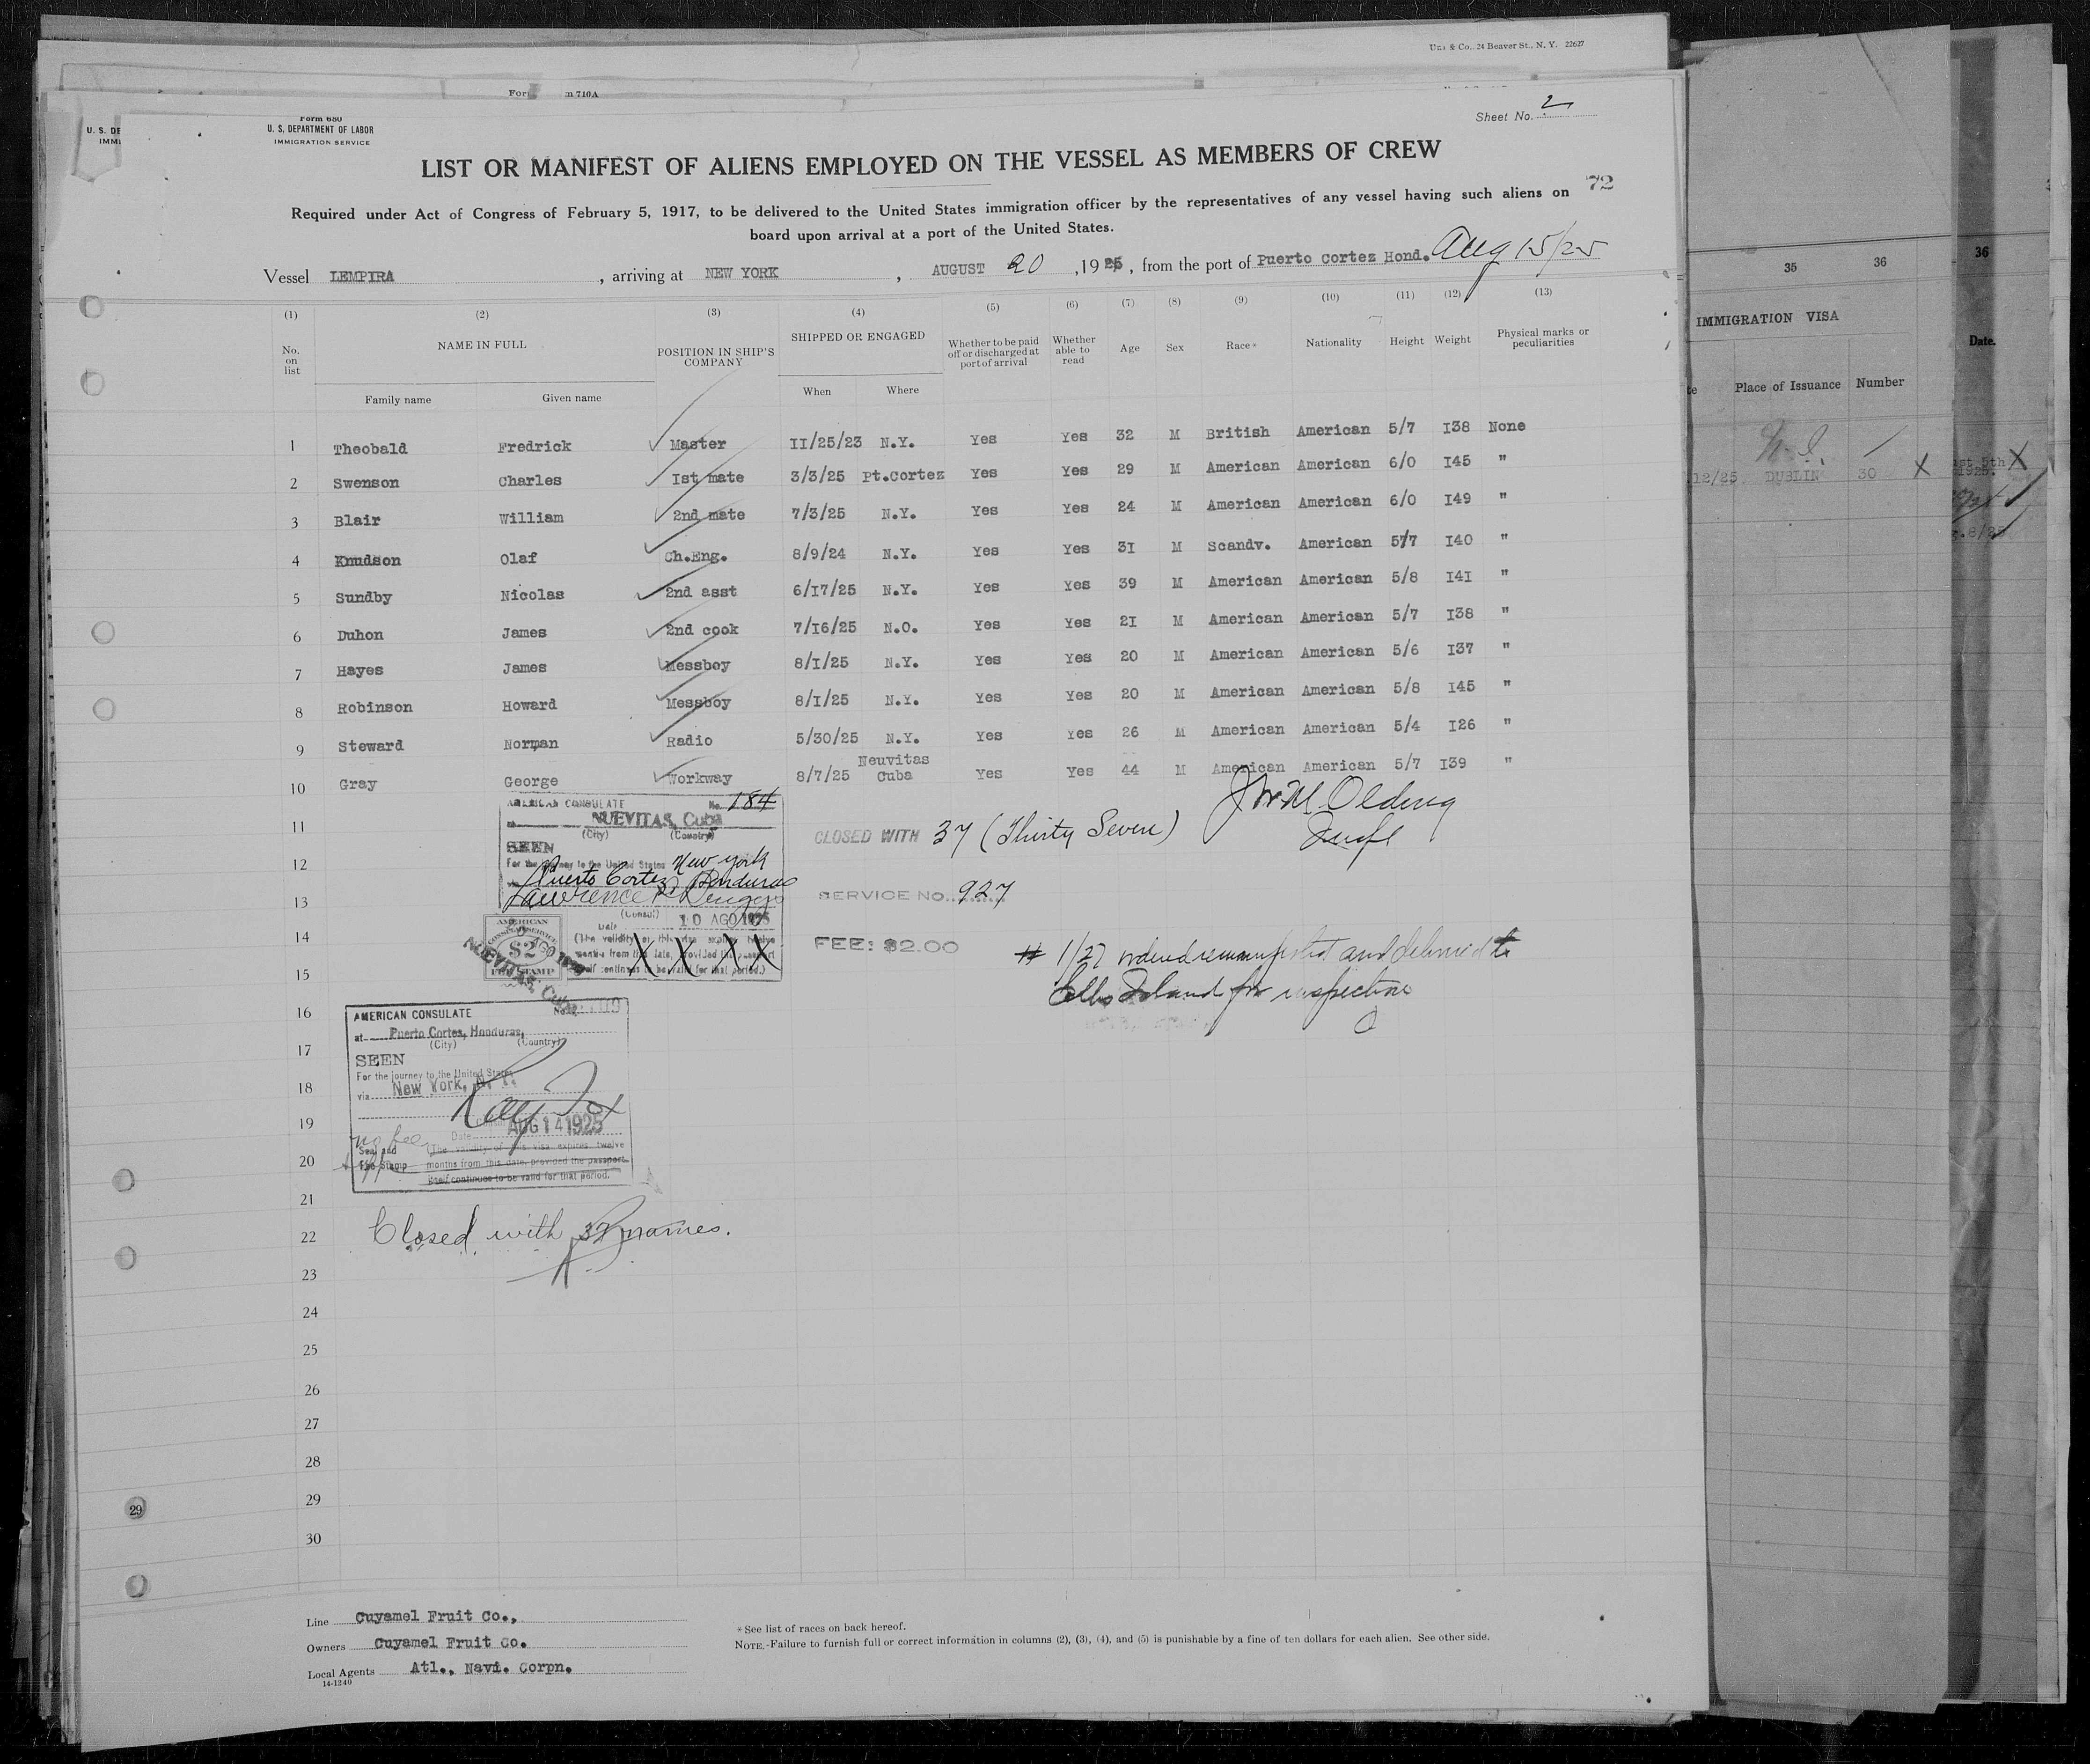 Co., 24 Beaver St., N. Y. 22627
m 710A
Sheet No. 2
U. S. DE
IMMI
Form 680
U. S. DEPARTMENT OF LABOR
IMMIGRATION SERVICE
LIST OR MANIFEST OF ALIENS EMPLOYED ON THE VESSEL AS MEMBERS OF CREW
72
Required under Act of Congress of February 5, 1917, to be delivered to the United States immigration officer by the representatives of any vessel having such aliens on
board upon arrival at a port of the United States.
Vessel LEMPIRA, arriving at NEW YORK, AUGUST 20, 1925, from the port of Puerto cortez Hond. Aug 15/25
(1) (2) (3) (4) (5) (6) (7) (8) (9) (10) (11) (12) (13)
No. on list NAME IN FULL POSITION IN SHIP'S COMPANY SHIPPED OR ENGAGED Whether to be paid off or discharged at port of arrival Whether able to read Age Sex Race* Nationality Height Weight Physical marks or peculiarities
Family name Given name When Where
1 Theobald Fredrick Master II/25/23 N.Y. Yes Yes 32 M British American 5/7 I38 None
2 Swenson Charles Ist mate 3/3/25 Pt.cortez Yes Yes 29 M American American 6/0 I45 "
3 Blair William 2nd mate 7/3/25 N.Y. Yes Yes 24 M American American 6/0 I49 "
4 Knudson Olaf Ch.Eng. 8/9/24 N.Y. Yes Yes 3I M Scandv. American 5/7 I40 "
5 Sundby Nicolas 2nd asst 6/I7/25 N.Y. Yes Yes 39 M American American 5/8 I4I "
6 Duhon James 2nd cook 7/I6/25 N.O. Yes Yes 2I M American American 5/7 I38 "
7 Hayes James Messboy 8/I/25 N.Y. Yes Yes 20 M American American 5/6 I37 "
8 Robinson Howard Messboy 8/I/25 N.Y. Yes Yes 20 M American American 5/8 I45 "
9 Steward Norman Radio 5/30/25 N.Y. Yes Yes 26 M American American 5/4 I26 "
10 Gray George Workway 8/7/25 Neuvitas Cuba Yes Yes 44 M American American 5/7 I39 "
11
12
13
14
15
16
17
18
19
20
21
22
23
24
25
26
27
28
29
30
AMERICAN CONSULATE No. 184
at NUEVITAS, Cuba
(City) (Country)
SEEN
For the journey to the United States New York
via Puerto Cortez, Honduras
Lawrence
(Consul)
Date 10 AGO 1925
(The validity of this visa expires twelve
months from this date, provided the passport
itself continues to be valid for that period.)
X X X X
AMERICAN
CONSULAR SERVICE
$2
FEE STAMP
NUEVITAS, Cuba
CLOSED WITH 37 (Thirty Seven)
SERVICE NO. 927
FEE: $2.00
J W M Olding
# 1/27 ordered remanifested and delivered to
Ellis Island for inspection
AMERICAN CONSULATE No.
at Puerto Cortes, Honduras,
(City) (Country)
SEEN
For the journey to the United States
via New York, N. Y.
Date AUG 14 1925
no fee
Seal and
Fee Stamp
(The validity of this visa expires twelve
months from this date, provided the passport
itself continues to be valid for that period.
Closed with 37 names.
Line Cuyamel Fruit Co.,
Owners Cuyamel Fruit Co.
Local Agents Atl., Navi. Corpn.
14-1240
* See list of races on back hereof.
NOTE.-Failure to furnish full or correct information in columns (2), (3), (4), and (5) is punishable by a fine of ten dollars for each alien. See other side.
29
35 36
IMMIGRATION VISA
Place of Issuance Number
12/25 DUBLIN 30 X
36
Date.